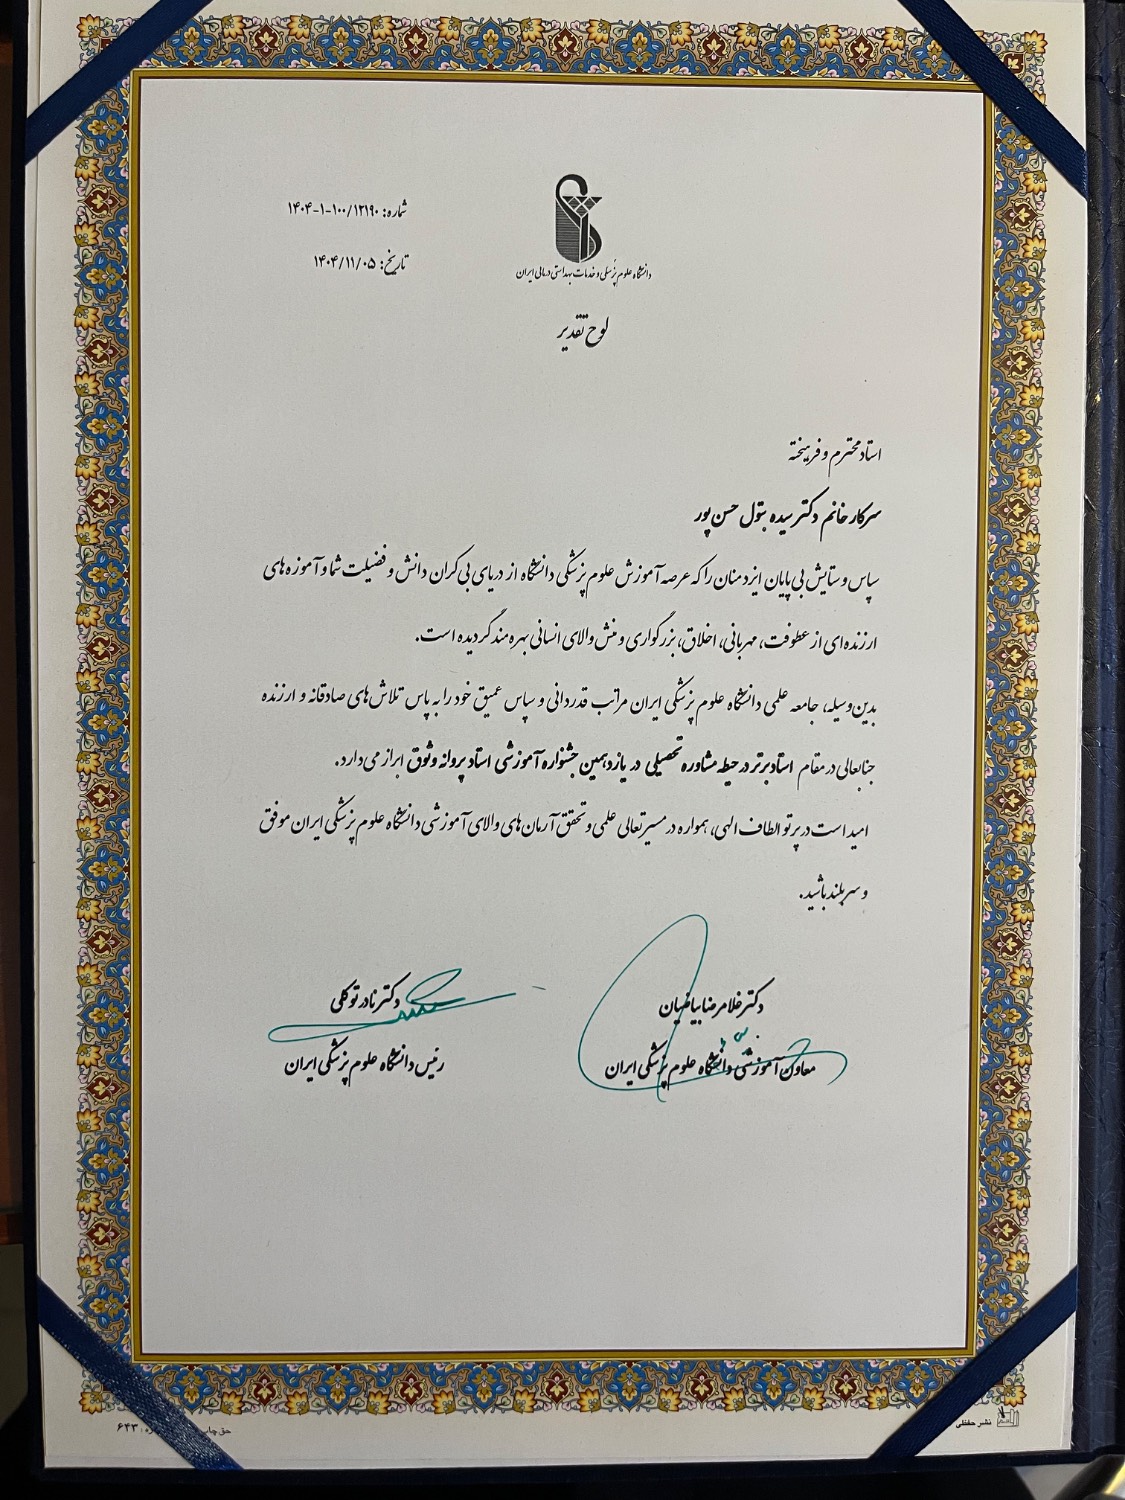 شماره: ۱۴۰۴-۱-۱۰۰/۱۲۱۹۰
تاریخ: ۱۴۰۴/۱۱/۰۵
دانشگاه علوم پزشکی و خدمات بهداشتی درمانی ایران
لوح تقدیر
استاد محترم و فرهیخته
سرکار خانم دکتر سیده بتول حسن پور
سپاس و ستایش بی پایان ایزد منان را که عرصه آموزش علوم پزشکی دانشگاه از دریای بی کران دانش و فضیلت شما و آموزه های
ارزنده ای از عطوفت، مهربانی، اخلاق، بزرگواری و منش والای انسانی بهره مند گردیده است.
بدین وسیله، جامعه علمی دانشگاه علوم پزشکی ایران مراتب قدردانی و سپاس عمیق خود را به پاس تلاش های صادقانه و ارزنده
جنابعالی در مقام استاد برتر در حیطه مشاوره تحصیلی در یازدهمین جشنواره آموزشی استاد پروانه وثوق ابراز می دارد.
امید است در پرتو الطاف الهی، همواره در مسیر تعالی علمی و تحقق آرمان های والای آموزشی دانشگاه علوم پزشکی ایران موفق
و سربلند باشید.
دکتر غلامرضا بیاضیان
معاون آموزشی دانشگاه علوم پزشکی ایران
دکتر نادر توکلی
رئیس دانشگاه علوم پزشکی ایران
نشر حفظی
حق چاپ
۶۴۳